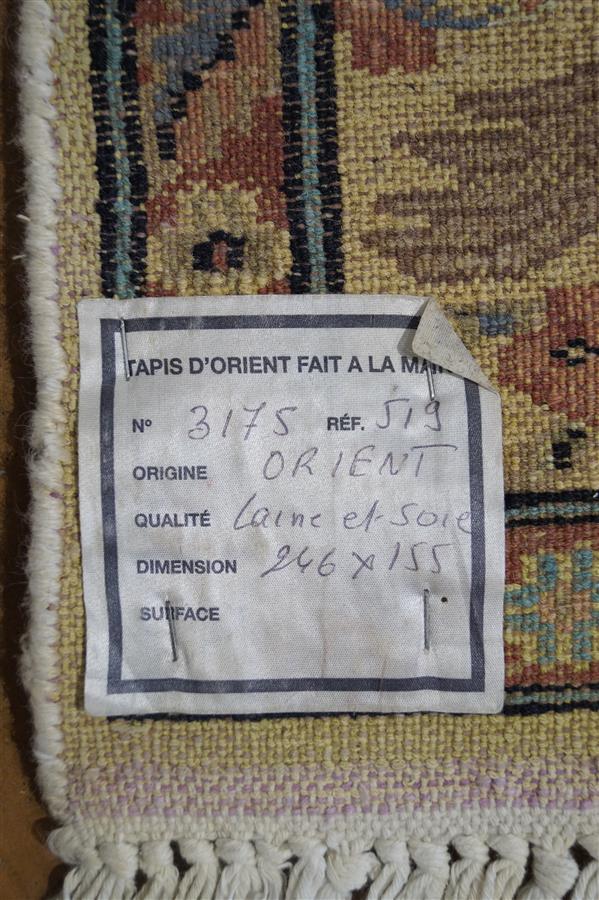 TAPIS D'ORIENT FAIT A LA MAIN
N° 3175 RÉF. 519
ORIGINE ORIENT
QUALITÉ Laine et Soie
DIMENSION 246 x 155
SURFACE